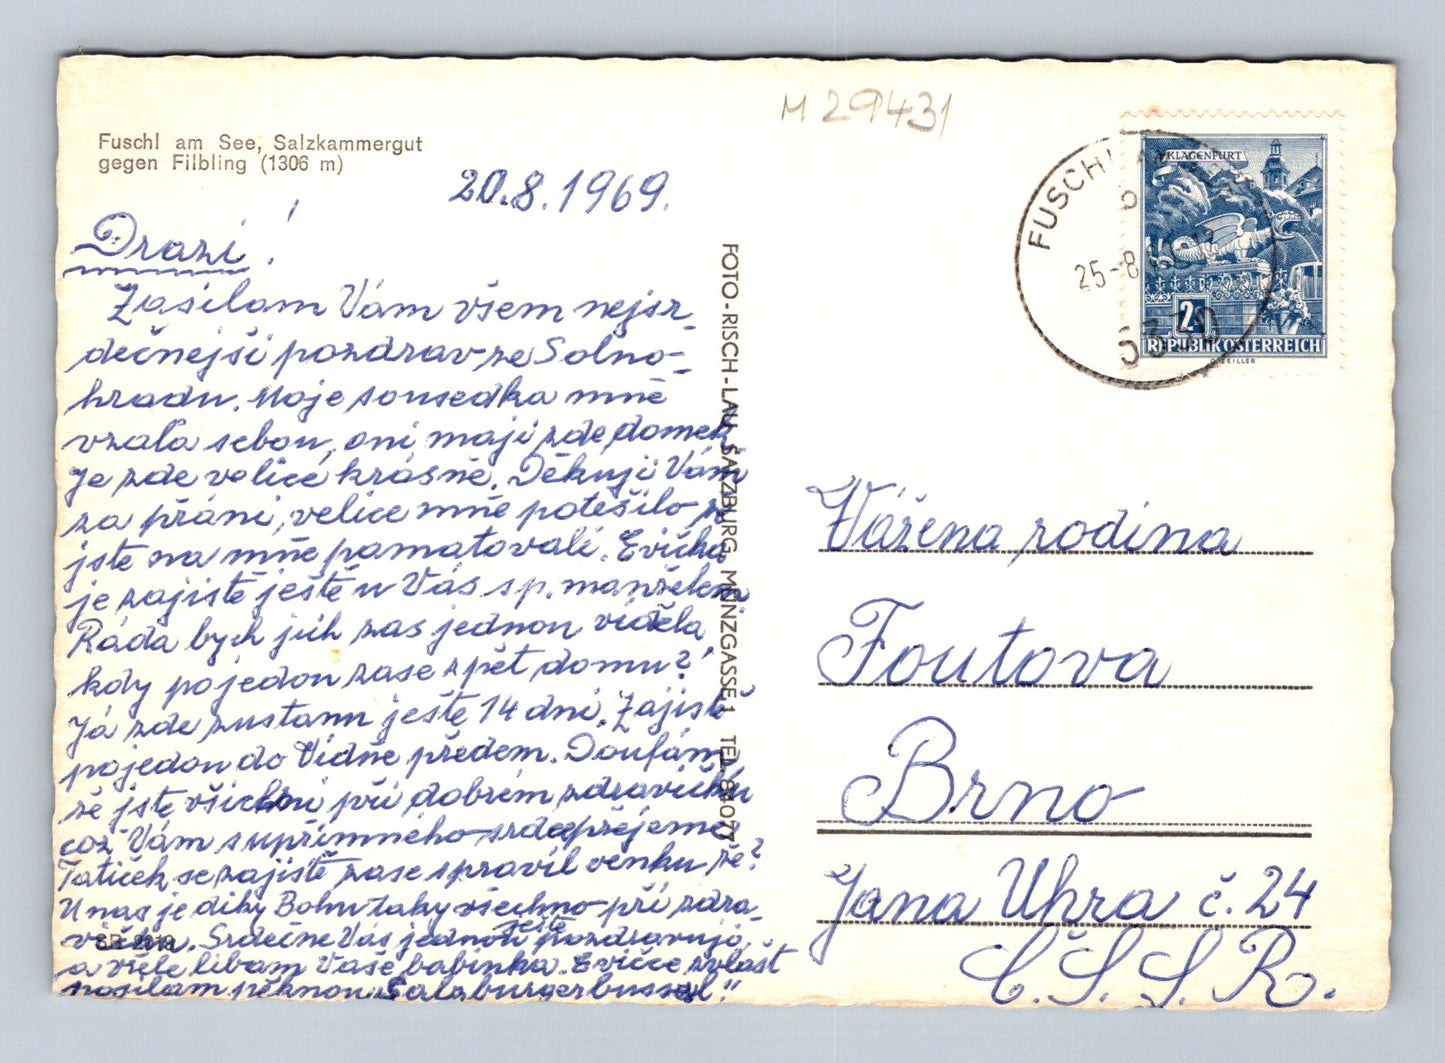 M 29431
Fuschl am See, Salzkammergut
gegen Filbling (1306 m)
20.8.1969.
Drazí!
Zasílam Vám všem nejsr_
dečnejší pozdrav ze Solno-
hradu. Moje sousedka mně
vzala sebou, oni mají zde domek
Je zde velice krásně. Děkuji Vám
za přání, velice mně potěšilo že
jste na mně pamatovali. Evička
je zajistě ještě u Vás s p. manželem
Ráda bych jich zas jednou viděla,
kdy pojedou zase zpět domu?
Já zde zustanu ještě 14 dní. Zajistě
pojedou do Vídně předem. Doufám
že jste všichni při dobrém zdravíčku
což Vám supřímného srdce přejeme.
Tatíček se zajistě zase spravil venku že?
U nás je díky Bohu taky všechno při zdra_
víčku. Srdečně Vás jednou ještě pozdravují
a vřele líbam Vaše babinka. Evičce zvlášt
posílam pěknou „Salzburgerbussel."
FOTO-RISCH-LAU, SALZBURG, MÜNZGASSE 1 TEL. 84077
FUSCHL AM SEE
25.-8.69
5330
KLAGENFURT
2
S
REPUBLIK ÖSTERREICH
O. ZEILLER
Vážena rodina
Foutova
Brno
Jana Uhra č. 24
Č.S.S.R.